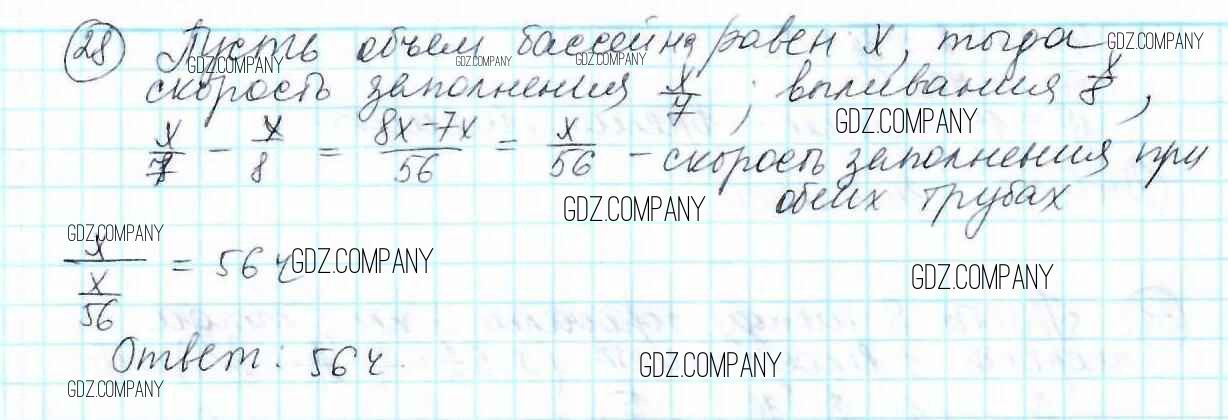 28 Пусть объем бассейна равен x, тогда
скорость заполнения x/7; выливания x/8,
x/7 - x/8 = 8x-7x/56 = x/56 - скорость заполнения при
обеих трубах
x/x/56 = 56 ч
Ответ: 56 ч.
GDZ.COMPANY
GDZ.COMPANY
GDZ.COMPANY
GDZ.COMPANY
GDZ.COMPANY
GDZ.COMPANY
GDZ.COMPANY
GDZ.COMPANY
GDZ.COMPANY
GDZ.COMPANY
GDZ.COMPANY